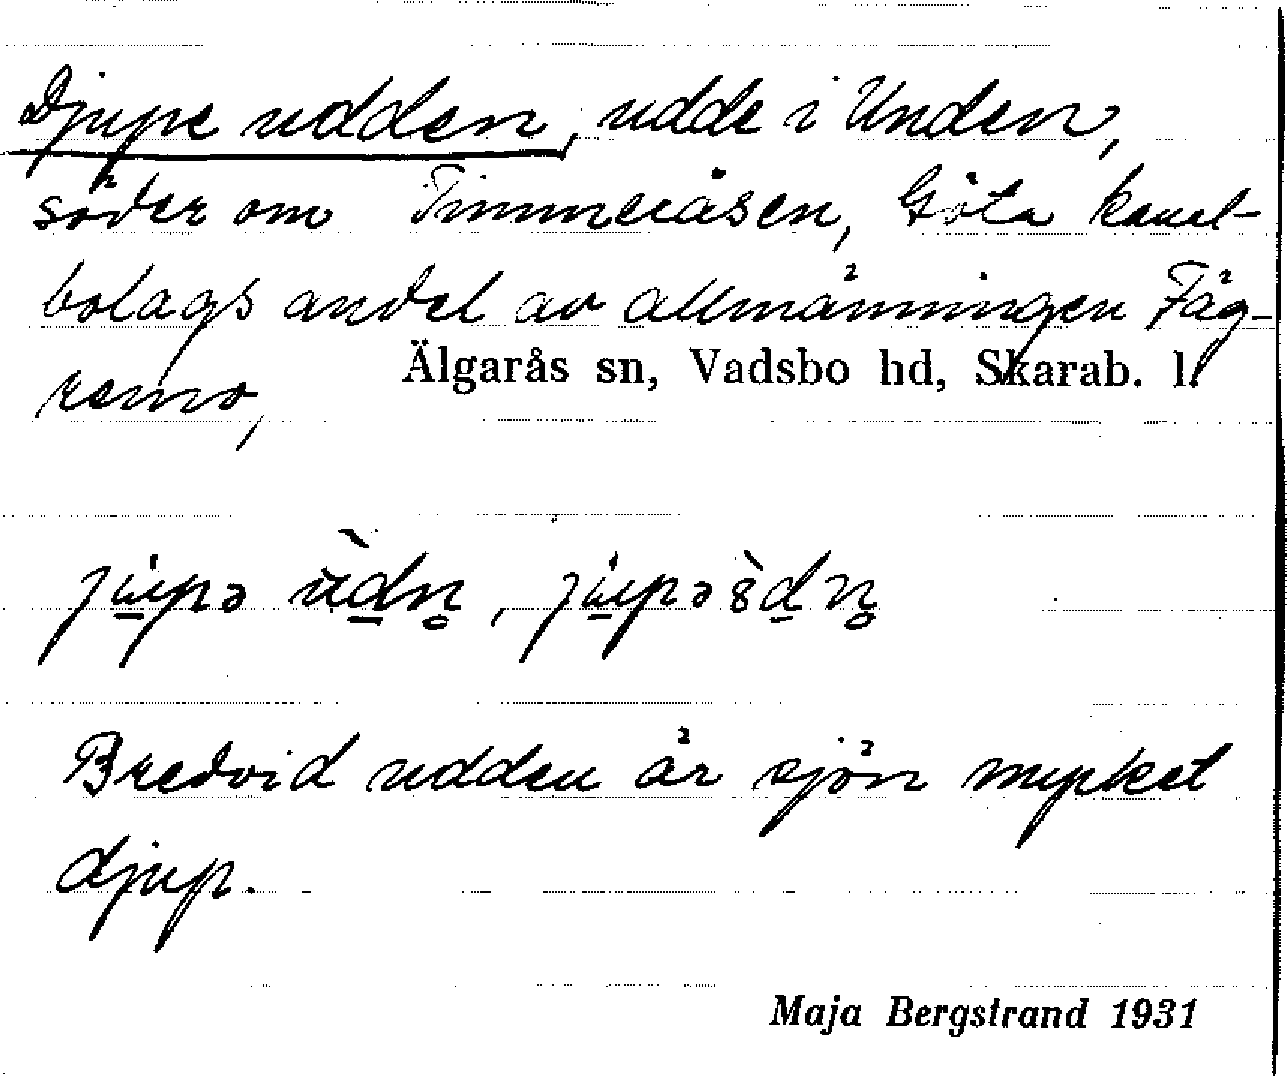 Djupe udden, udde i Unden,
söder om Timmeråsen, Göta kanal-
bolags andel av allmänningen Fäg-
remo,
Älgarås sn, Vadsbo hd, Skarab. l.
Bredvid udden är sjön mycket
djup.
Maja Bergstrand 1931